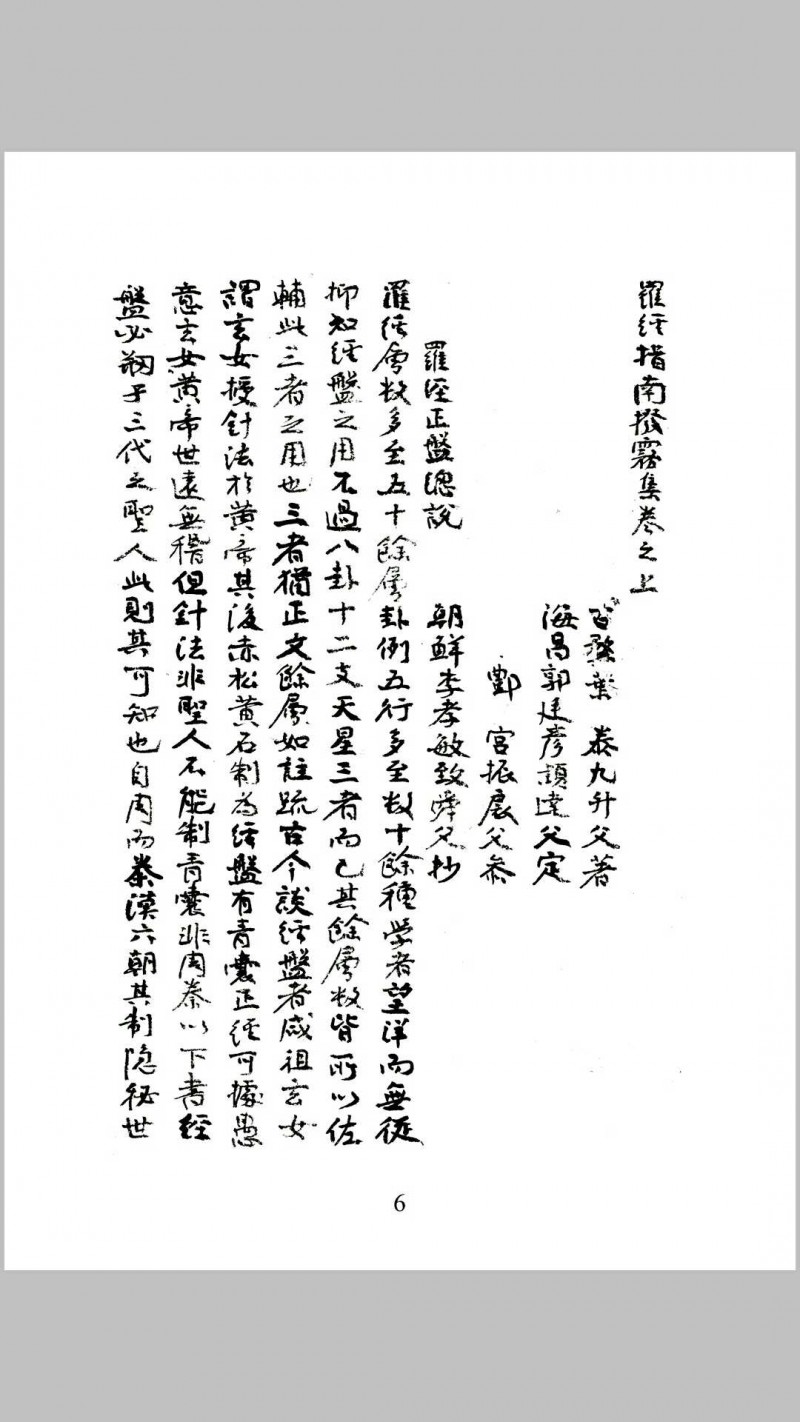 羅經指南撥霧集卷之上
葉 泰九升父著
海昌郭廷彦頴達父定
鄞 宮振宸父叅
朝鮮李孝敏致舜父抄
羅经正盤總說
羅經層数多至五十餘層卦例五行多至数十餘種学者望洋而無從
抑知经盤之用不過八卦十二支天星三者而已其餘層数皆所以佐
輔此三者之用也三者猶正文餘層如註疏古今談经盤者咸祖玄女
謂玄女授針法於黄帝其後赤松黄石制為经盤有青囊正经可據愚
意玄女黄帝世遠無稽但針法非聖人不能制青囊非周秦以下書經
盤必剏于三代之聖人此則其可知也自周而秦漢六朝其制隐秘世
6